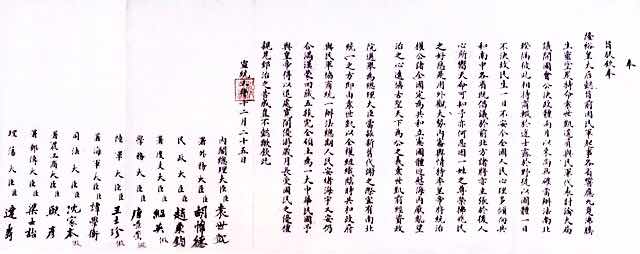 奉
旨朕欽奉
隆裕皇太后懿旨前因民軍起事各省響應九夏沸騰
生靈塗炭特命袁世凱遣員與民軍代表討論大局
議開國會公決政體兩月以來尚無確當辦法南北
暌隔彼此相持商輟於途士露於野徒以國體一日
不決故民生一日不安今全國人民心理多傾向共
和南中各省既倡議於前北方諸將亦主張於後人
心所嚮天命可知予亦何忍因一姓之尊榮拂兆民
之好惡是用外觀大勢內審輿情特率皇帝將統治
權公諸全國定為共和立憲國體近慰海內厭亂望
治之心遠協古聖天下為公之義袁世凱前經資政
院選舉為總理大臣當茲新舊代謝之際宜有南北
統一之方即由袁世凱以全權組織臨時共和政府
與民軍協商統一辦法總期人民安堵海宇乂安仍
合滿漢蒙回藏五族完全領土為一大中華民國予
與皇帝得以退處寬閒優游歲月長受國民之優禮
親見郅治之告成豈不懿歟欽此
宣統三年十二月二十五日
內閣總理大臣袁世凱
署外務大臣胡惟德
民政大臣趙秉鈞
署度支大臣紹英假
學務大臣唐景崇假
陸軍大臣王士珍假
署海軍大臣譚學衡
司法大臣沈家本假
署農工商大臣熙彥
署郵傳大臣梁士詒
理藩大臣達壽